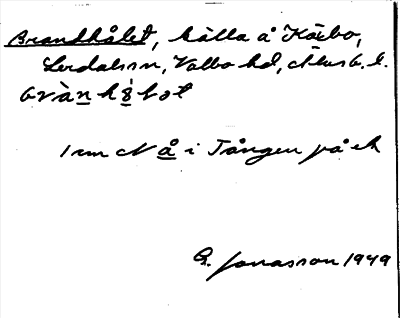 Brandhålet, källa å Kärbo,
Lerdals sn, Valbo hd, Älvsb. l.
bràn hȯ̀lot
1 cm N å i Tången på ek
G. Jonasson 1949